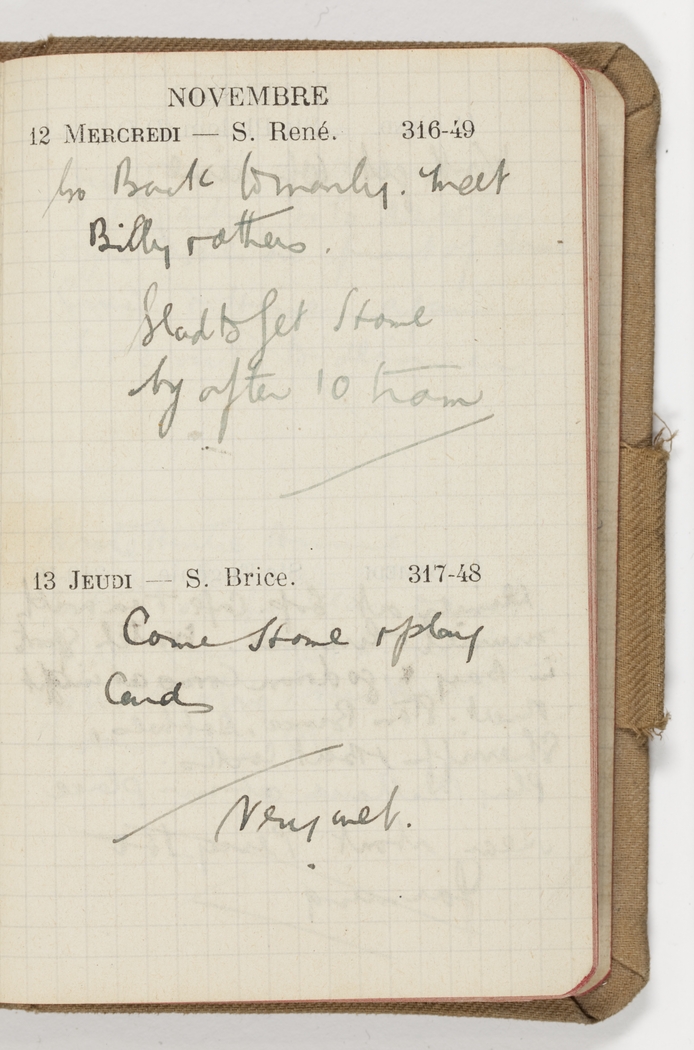 NOVEMBRE
12 MERCREDI — S. René. 316-49
Go Back to Manly. Meet
Billy & others.
Glad to get Home
by after 10 tram
13 JEUDI — S. Brice. 317-48
Come Home & play
Cards
Very wet.